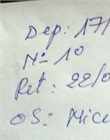 Dep: 171
Nº 1º
Ret: 22/0
OS: Mic